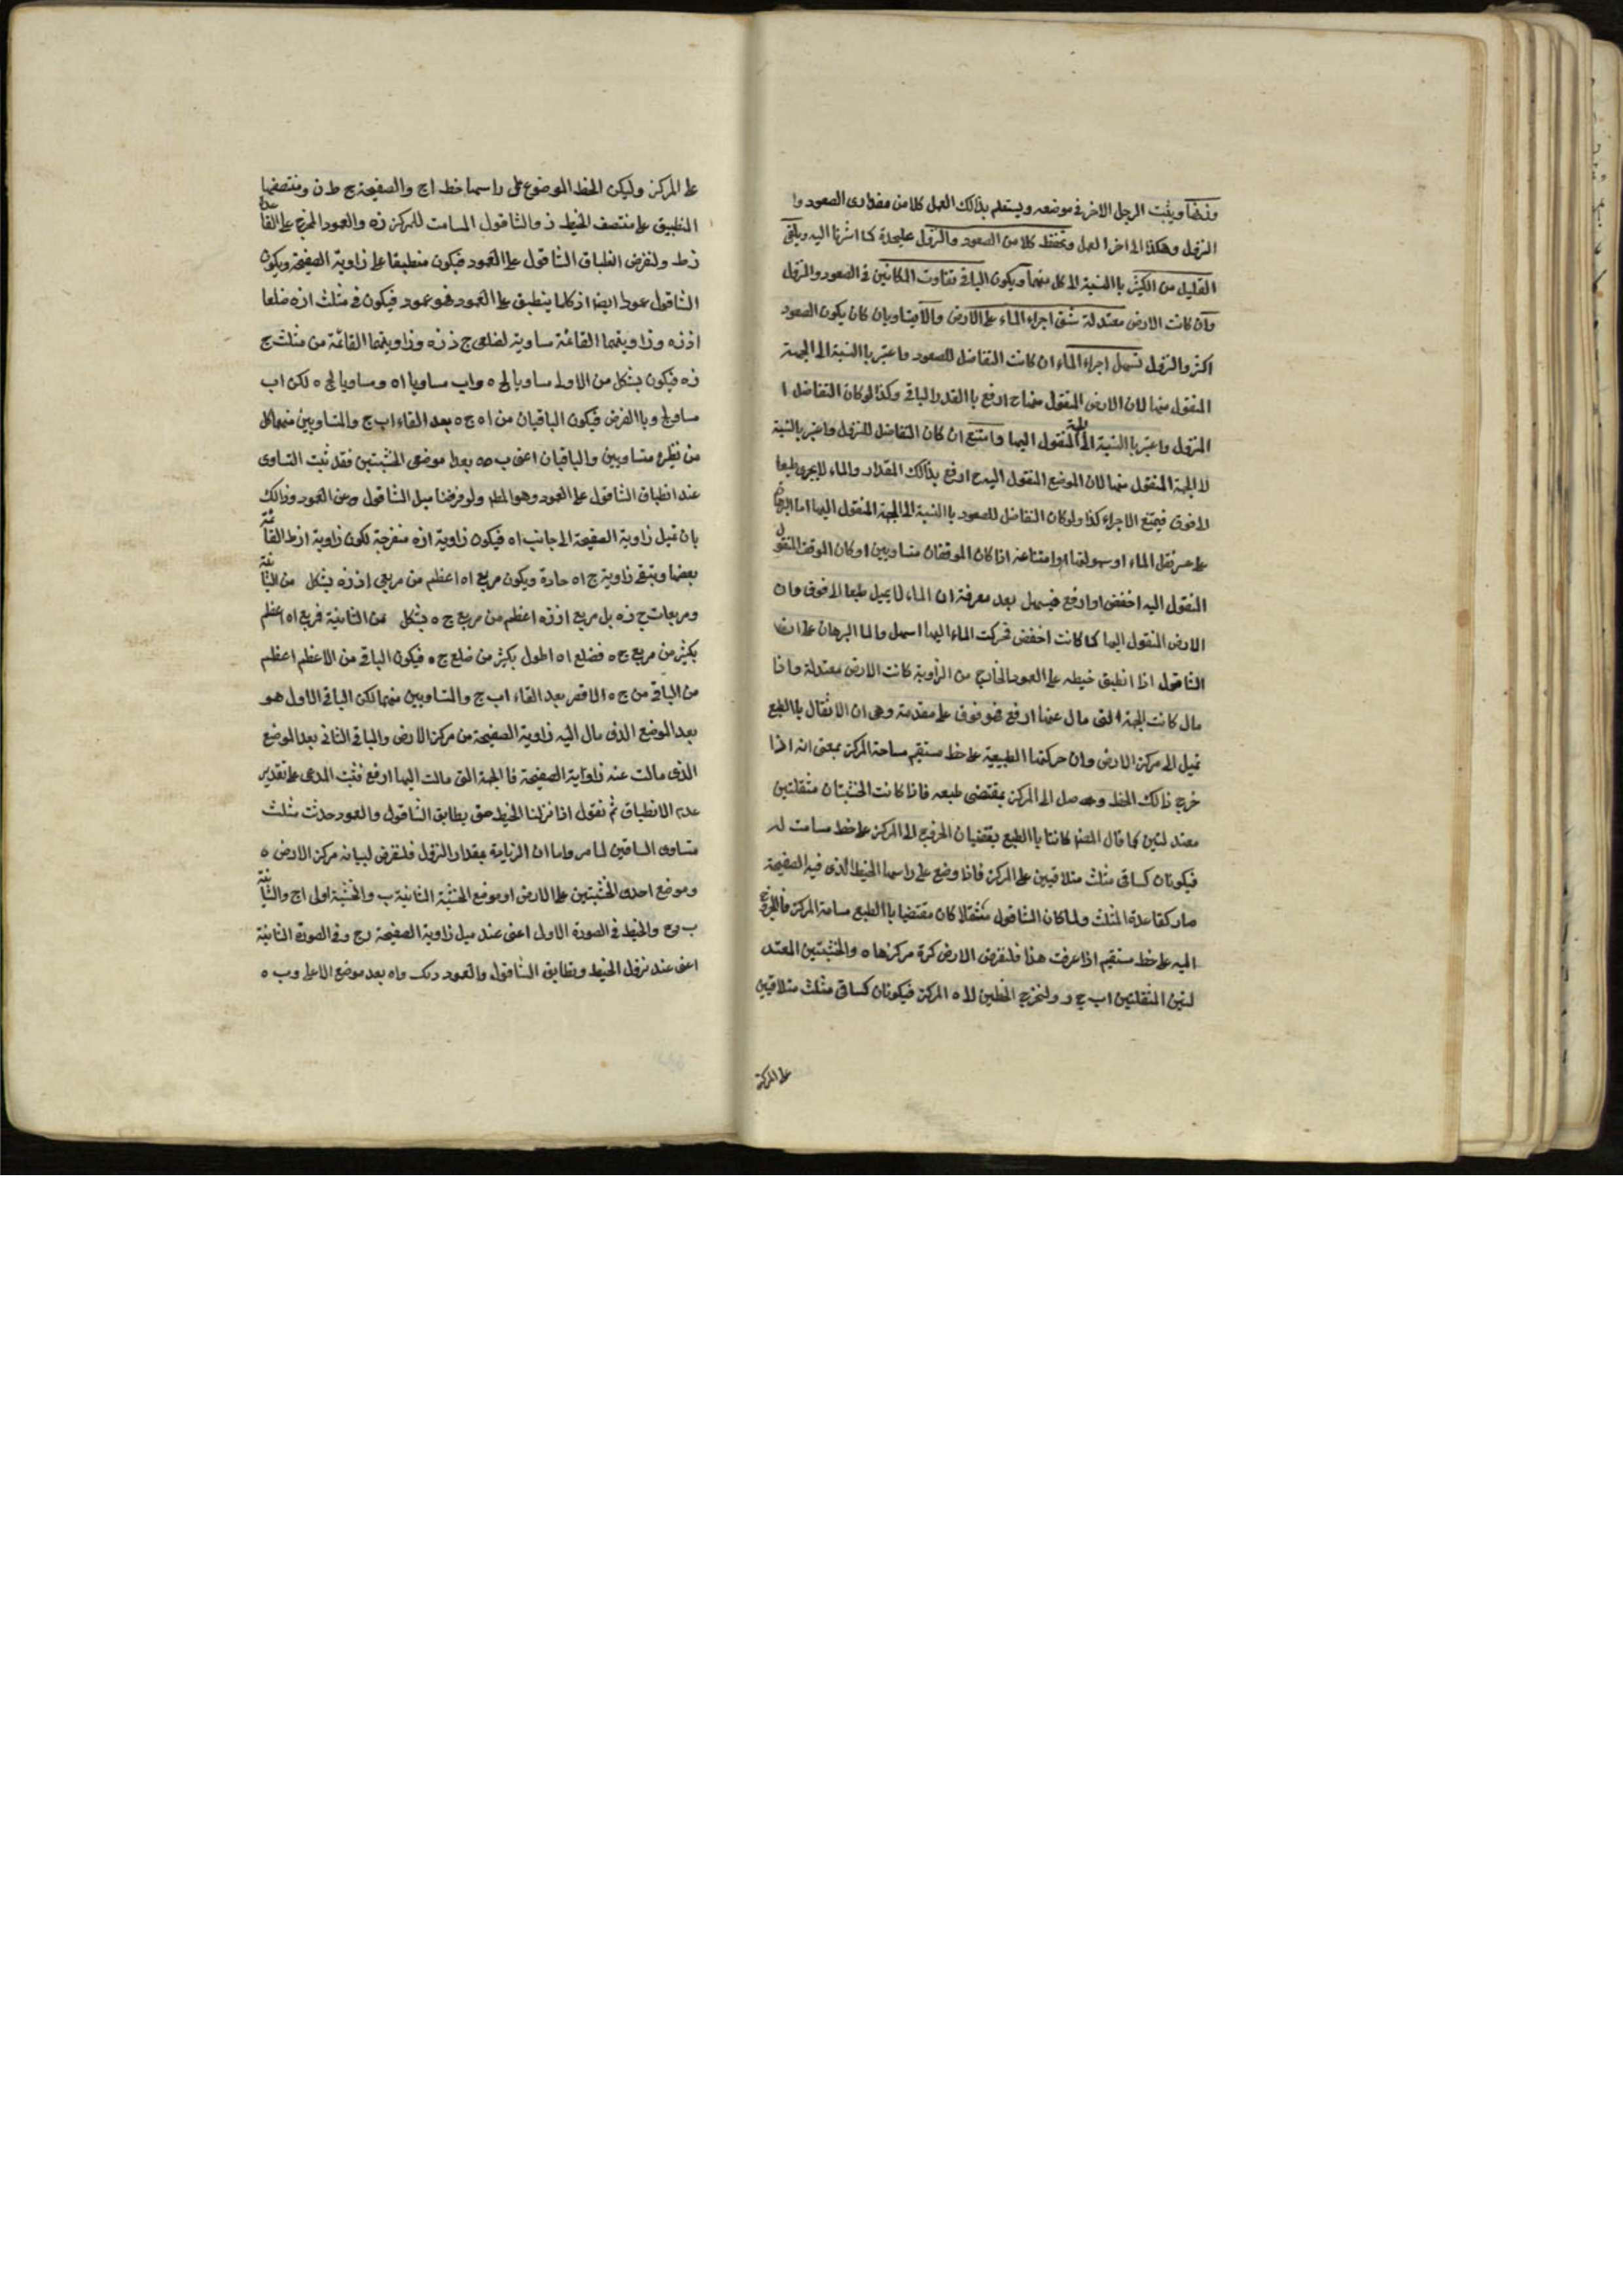 وزنها ويثبت الرجل الاخر فى موضعه ويستعلم بذالك العمل كلا من مقدارى الصعود وا
النزول وهكذا الى اخر العمل وتحفظ كلا من الصعود والنزول عليحدة كما اشرنا اليه ويلقى
القليل من الكثير باالنسبة الى كل منهما ويكون الباقى تفاوت المكانين فى الصعود والنزول
وان كانت الارض معتدلة شق اجراء الماء على الارض والا يتساويان كان يكون الصعود
اكثر والنزول تسهل اجراء الماء ان كانت التفاضل للصعود واعتبر باالنسبة الى الجهة
المنقول منها لان الارض المنقول منها ح ارفع باالقدر الباقى وكذا لوكان التفاضل ا
النزول واعتبر باالنسبة الى المنقول اليها وامتنع ان كان التفاضل للنزول واعتبر بالنسبة
لا الجهة المنقول منها لان الموضع المنقول اليه ح ارفع بذالك المقدار والماء لايجرى طبعا
لا فوق فيمتنع الاجراء كذا ولوكان التفاضل للصعود باالنسبة الى الجهة المنقول اليها اما البرهان
على عسر نقل الماء او سهولتها او امتناعه اذا كان الموقفان متساويين او كان الموقف المنقول
المنقول اليه اخفض او ارفع فيسهل بعد معرفة ان الماء لا يميل طبعا الى فوق وان
الارض المنقول اليها كلما كانت اخفض فحركت الماء اليها اسهل واما البرهان على ان
الشاقول اذا انطبق خيطه على العمود الخارج من الزاوية كانت الارض معتدلة واذا
مال كانت الجهة التى مال عنها ارفع فموقوف على مقدمة وهى ان الاثقال باالطبع
تميل الى مركز الارض وان حركتها الطبيعية على خط مستقيم مساحة المركز بمعنى انه اذا
خرج ذالك الخط وصل الى المركز بمقتضى طبعه فاذا كانت الخشبتان مثقلتين
معتدلتين كما قال المص كانتا باالطبع يقتضيان الخروج الى المركز على خط مسامت له
فيكونان كساقى مثلث متلاقيين على المركز فاذا وضع على راسهما الخيط الذى فيه الصفيحة
صار كقاعدة المثلث ولما كان الشاقول مثقلا كان مقتضيا باالطبع مسامتة المركز فاالخروج
اليه على خط مستقيم اذا عرفت هذا فلنفرض الارض كرة مركزها ه والخشبتين المعتد
لتين المثقلتين اب ج د ولنخرج الخطين لا ه المركز فيكونان كساقى مثلث متلاقيين
على المركز
على المركز وليكن الخط الموضوع على راسهما خط اج والصفيحة ح ط ن ومنتصفها
المنطبق على منتصف الخيط ز والشاقول المسامت للمركز زه والعمود المخرج على القاعدة
زط ولنفرض انطباق الشاقول على العمود فيكون منطبقا على زاوية الصفيحة ويكون
الشاقول عمودا ايضا اذ كلما ينطبق على العمود فهو عمود فيكون فى مثلث ازه ضلعا
از زه وزاويتهما القائمة مساوية لضلعى ج ز زه وزاويتهما القائمة من مثلث ج
زه فيكون بشكل من الاولى مساويا لج ه واب مساويا اه ومساويا لج ه لكن اب
مساو لج د باالفرض فيكون الباقيان من اه ج ه بعد القاء اب ج د المتساويين منهما كل
من نظيره متساويين والباقيان اعنى ب ه ده بعدا موضعى الخشبتين فقد ثبت التساوى
عند انطباق الشاقول على العمود وهو المط ولو فرضنا ميل الشاقول عن العمود وذالك
بان تميل زاوية الصفيحة الى جانب اه فيكون زاوية ازه منفرجة لكون زاوية ازط القائمة
بعضها وتبقى زاوية ج اه حادة ويكون مربع اه اعظم من مربعى از زه بشكل من الثانية
ومربعا ج ز زه بل مربع از زه اعظم من مربع ج ه بشكل من الثانية فمربع اه اعظم
بكثير من مربع ج ه فضلع اه اطول بكثير من ضلع ج ه فيكون الباقى من الاعظم اعظم
من الباقى من ج ه الاقصر بعد القاء اب ج د المتساويين منهما لكن الباقى الاول هو
بعد الموضع الذى مال اليه زاوية الصفيحة من مركز الارض والباقى الثانى بعد الموضع
الذى مالت عنه زاوية الصفيحة فا الجهة التى مالت اليها ارفع فثبت المدعى على تقدير
عدم الانطباق ثم نقول اذا نزلنا الخيط حتى يطابق الشاقول والعمود حدثت مثلث
متساوى الساقين لما مر واما ان الزيادة بمقدار النزول فلنفرض لبيانه مركز الارض ه
وموضع احدى الخشبتين على الارض ا وموضع الخشبة الثانية ب والخشبة اولى اج والثانية
ب وح والخيط فى الصورة الاولى اعنى عند ميل زاوية الصفيحة رج وفى الصورة الثانية
اعنى عند نزول الخيط وتطابق الشاقول والعمود دك واه بعد موضع الاعلى وب ه